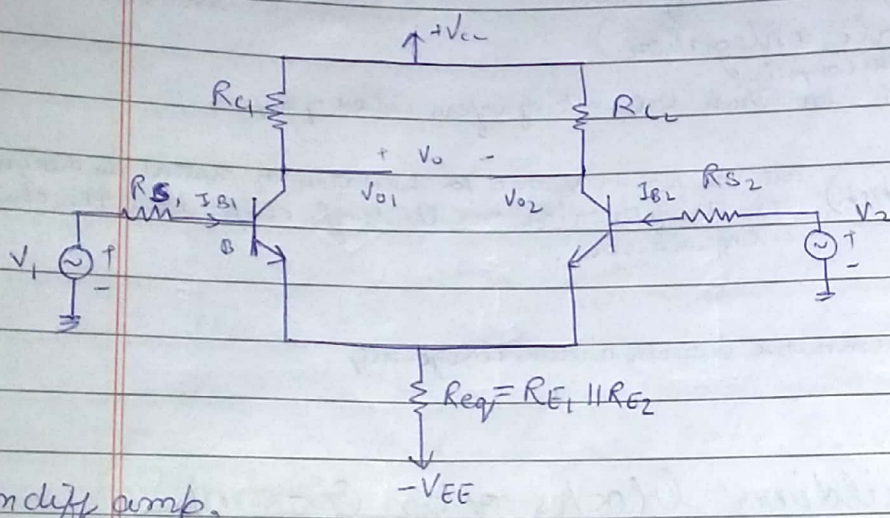 +Vcc
RC1
RC2
+ Vo -
Vo1
Vo2
RS1
IB1
IB2
RS2
V1
+
-
B
V2
+
-
Req = RE1 || RE2
-VEE
diff amp.